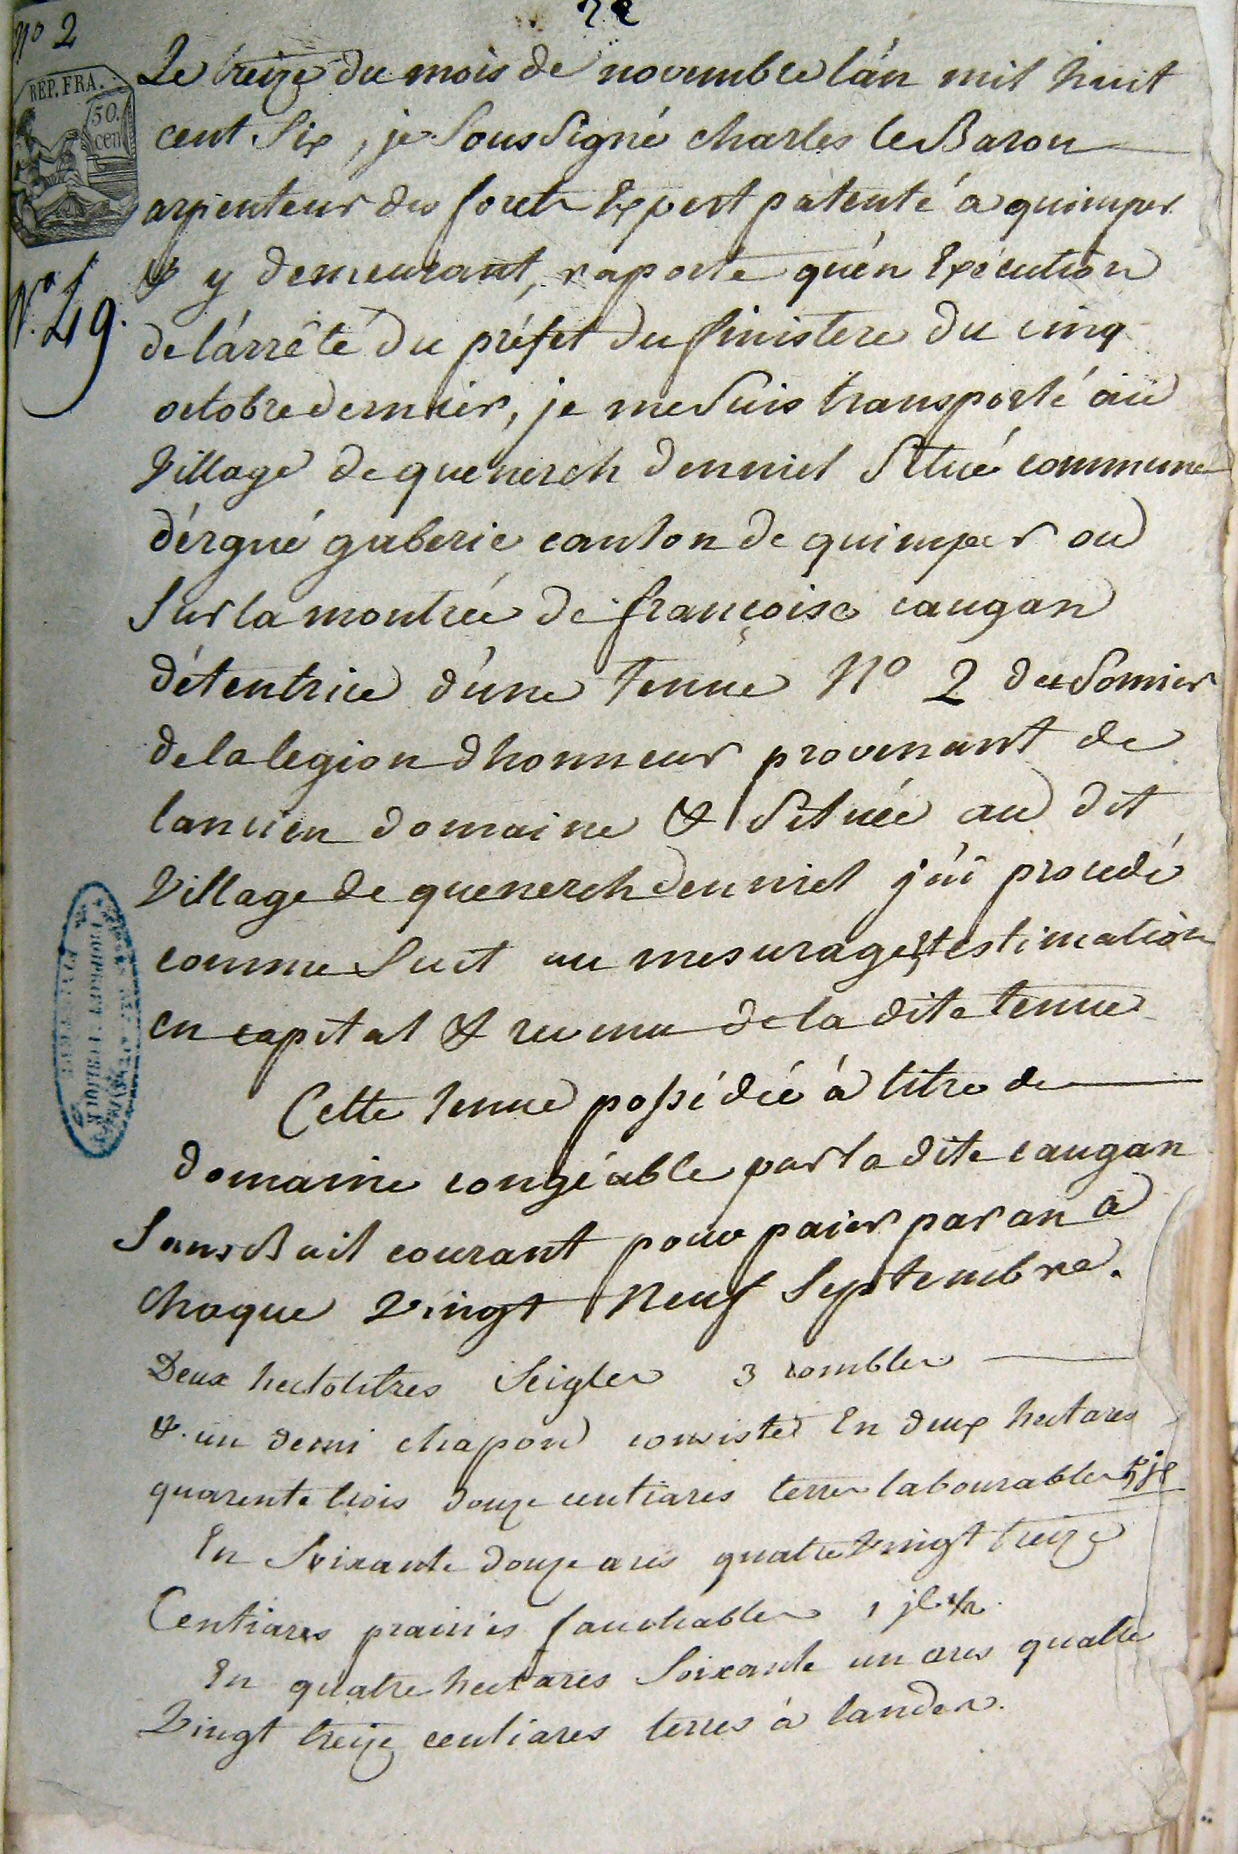 Nº 2
REP. FRA.
50.
cen
Nº 49.
Le treize du mois de novembre l'an mil huit
cent Six, je Soussigné charles le Baron
arpenteur des forets Expert patenté a quimper
& y demeurant, raporte qu'en Execution
de l'arrêté du préfet du finistere du cinq
octobre dernier, je me Suis transporté au
Village de quenerch denniel Situé commune
d'érgué gaberic canton de quimper ou
Sur la montrée de françoise caugan
détentrice d'une tenue Nº 2 du Somier
de la legion dhonneur provenant de
lancien domaine & Située au dit
Village de quenerchdenniel j'ai procedé
comme Suit au mesurage, Et estimation
en capital & revenu de la dite tenue
Cette tenue possédée à titre de
domaine congéable par la dite caugan
Sans Bail courant pour paier par an à
chaque vingt Neuf Septembre.
Deux hectolitres Seigle 3 combles
& un demi chapon consiste En deux hectares
quarente trois douze centiares terres labourables 5 jx
En Soixante douze ares quatre Vingt treize
Centiares prairies fauchables 1 jl ½.
En quatre hectares Soixante un ares quatre
Vingt treize centiares terres à landes.